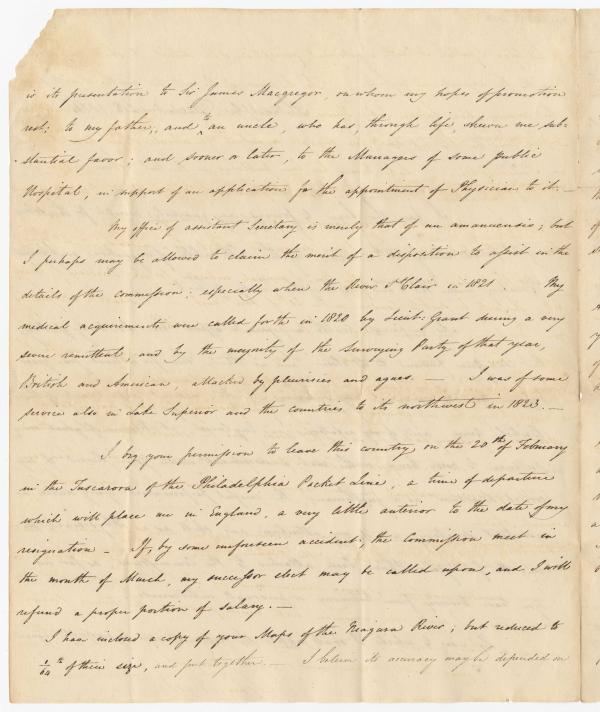 is its presentation to Sir James Macgregor, on whom my hopes of promotion
rest; to my father, and to an uncle, who has, through life, shewn me sub-
stantial favor; and sooner or later, to the Managers of some public
Hospital, in support of an application for the appointment of Physician to it. —
My office of assistant Secretary is merely that of an amanuensis; but
I perhaps may be allowed to claim the merit of a disposition to assist in the
details of the commission; especially when the River St Clair in 1821. My
medical acquirements were called forth in 1820 by Lieut: Grant during a very
severe remittent, and by the majority of the Surveying Party of that year,
British and American, attacked by pleurisies and agues. — I was of some
service also in Lake Superior and the countries to its northwest in 1823. —
I beg your permission to leave this country on the 20th of February
in the Tuscarora of the Philadelphia Packet Line, a time of departure
which will place me in England, a very little anterior to the date of my
resignation — If, by some unforeseen accident, the Commission meet in
the month of March, my successor elect may be called upon, and I will
refund a proper portion of salary. —
I have inclosed a copy of your Maps of the Niagara River; but reduced to
1/64th of their size, and put together. — I believe its accuracy may be depended on